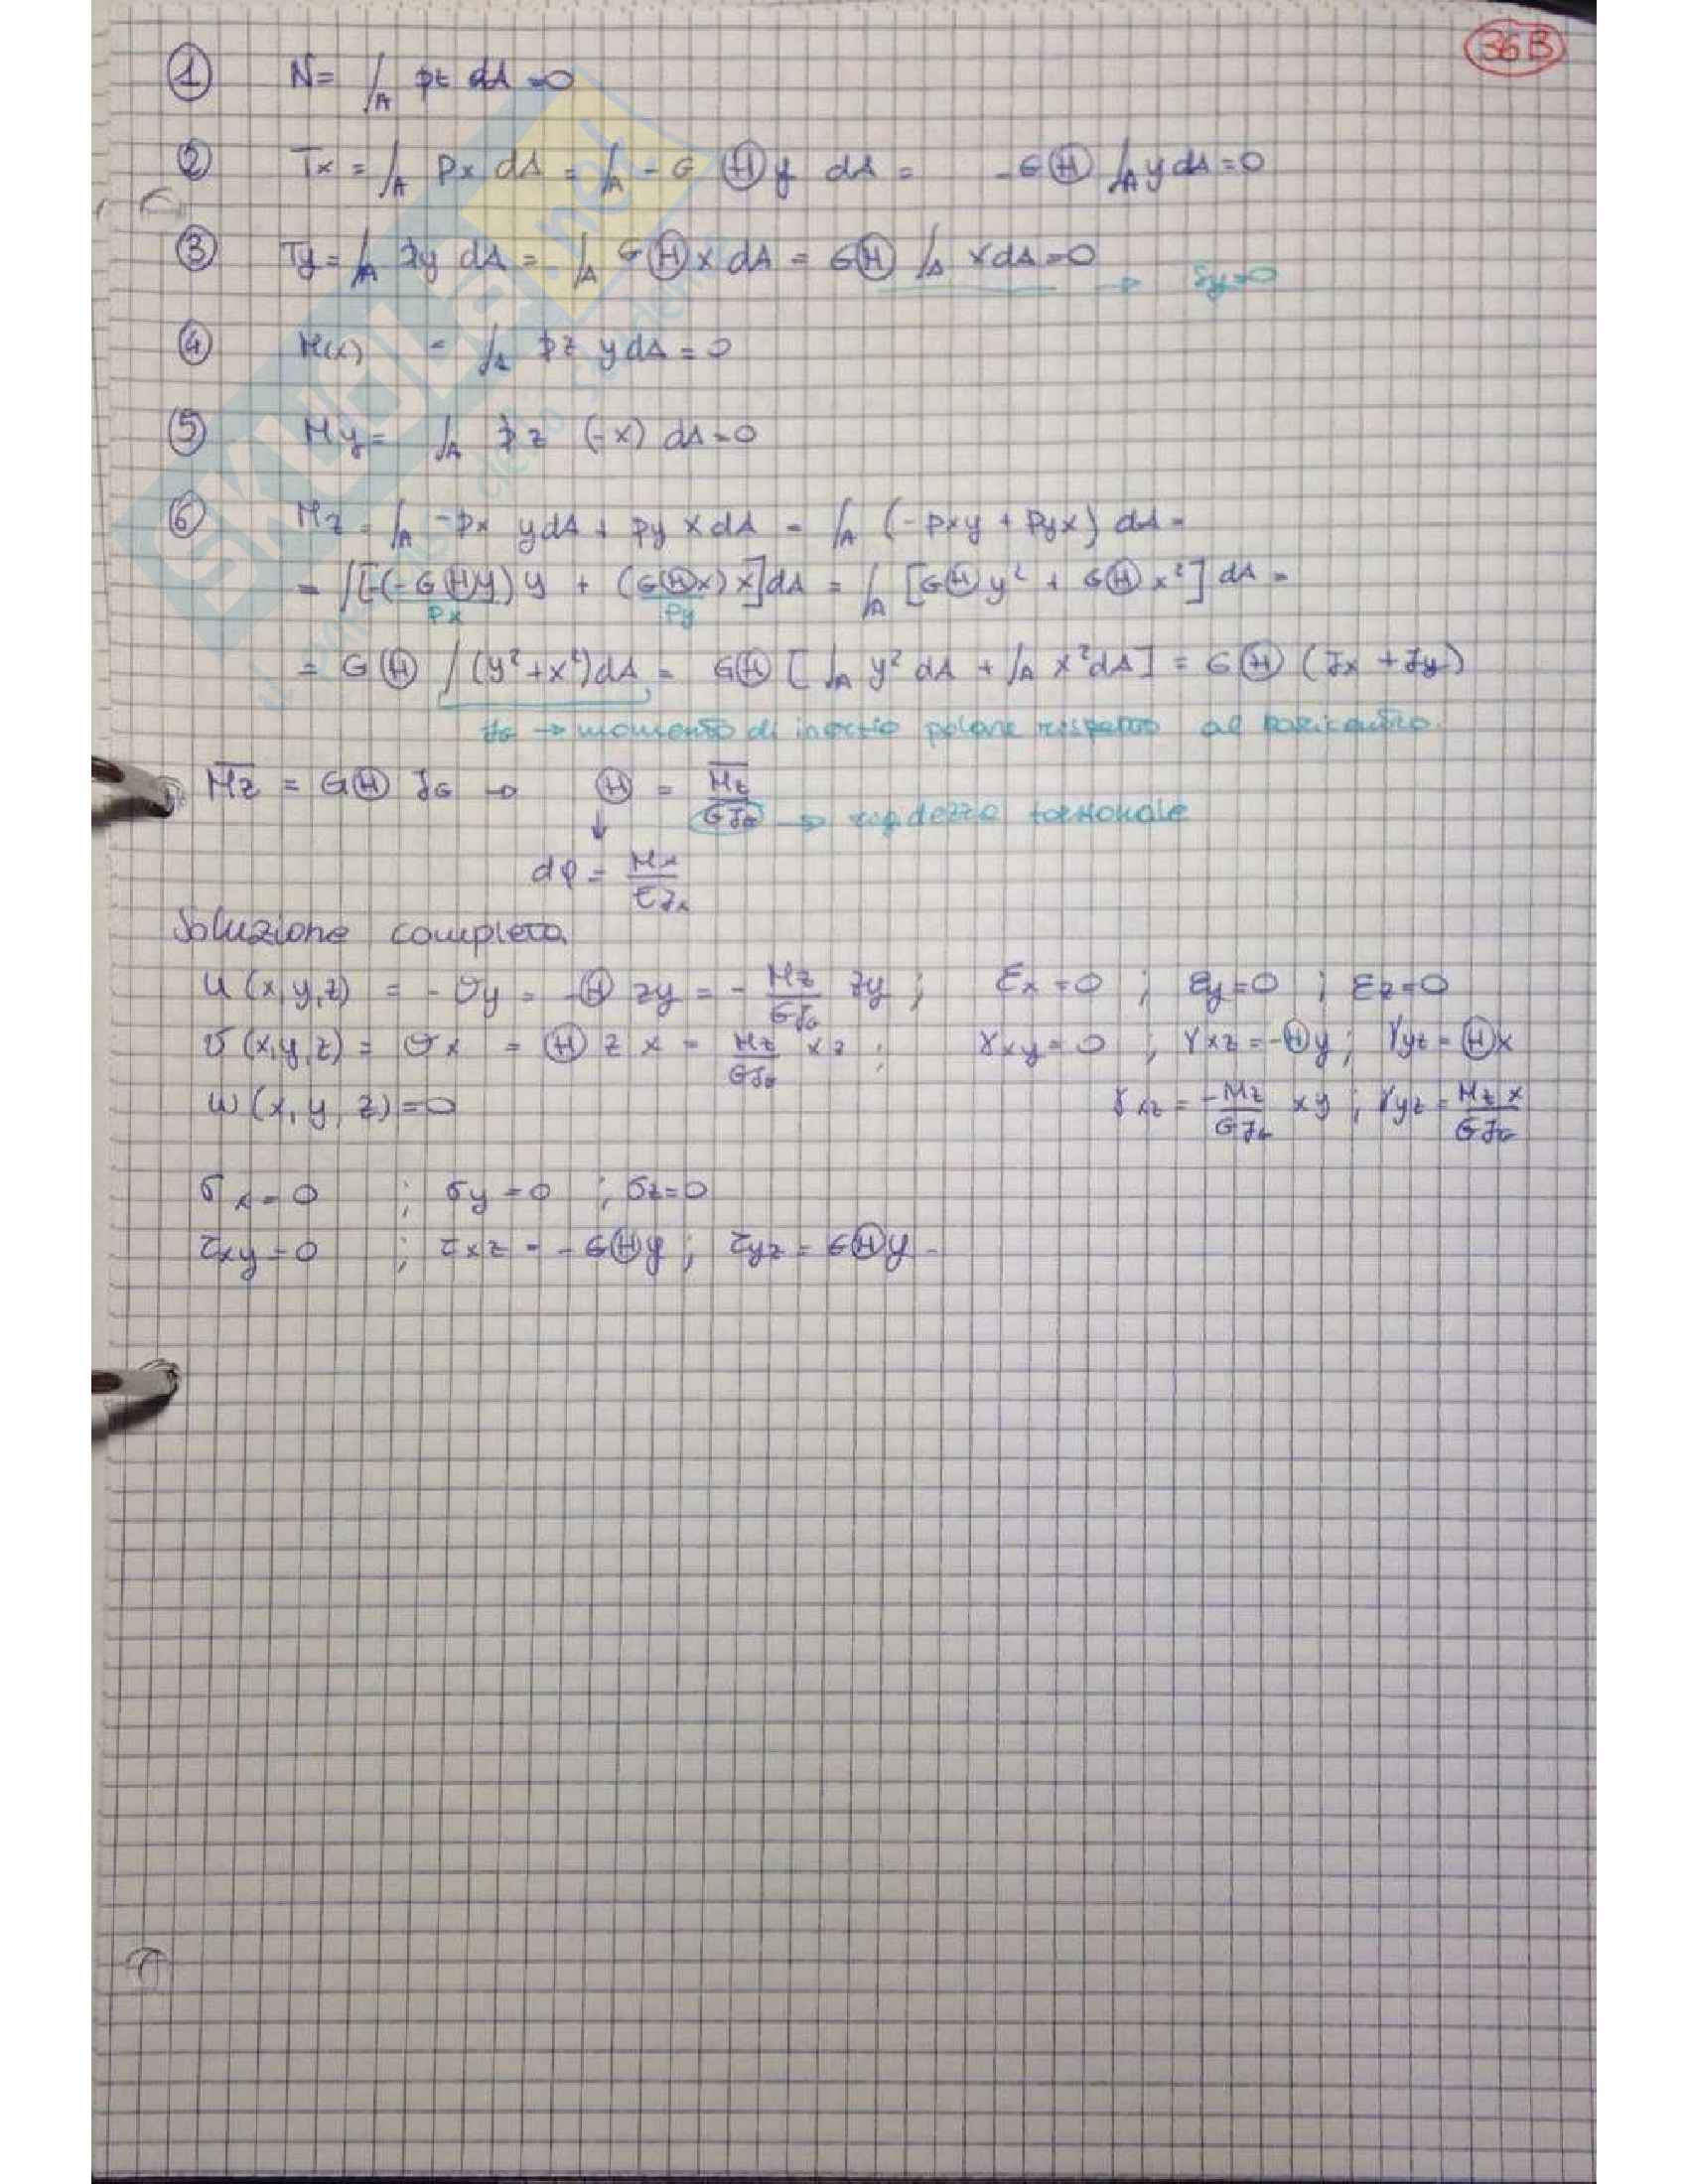 36B
① N = ∫A pz dA = 0
② Tx = ∫A px dA = ∫A - G Ⓗ y dA = - G Ⓗ ∫A y dA = 0
③ Ty = ∫A py dA = ∫A G Ⓗ x dA = G Ⓗ ∫A x dA = 0 → Sy=0
④ M(x) = ∫A pz y dA = 0
⑤ My = ∫A pz (-x) dA = 0
⑥ Mz = ∫A -px y dA + py x dA = ∫A (-pxy + pyx) dA =
= ∫[-(-GⒽy) y + (GⒽx) x] dA = ∫A [GⒽy² + GⒽx²] dA =
px py
= GⒽ ∫(y²+x²)dA = GⒽ [∫A y² dA + ∫A x² dA] = GⒽ (Jx + Jy)
JG → momento di inerzia polare rispetto al baricentro.
Mz = GⒽ JG → Ⓗ = Mz / GJG → rigidezza torsionale
↓
dφ = Mx / EJx
Soluzione completa
u (x,y,z) = -ϑy = -Ⓗ zy = - Mz/GJG zy ; εx = 0 ; εy = 0 ; εz = 0
v (x,y,z) = ϑx = Ⓗ z x = Mz/GJG x z ; γxy = 0 ; γxz = -Ⓗy ; γyz = Ⓗx
w (x, y, z) = 0 γxz = -Mz/GJG xy ; γyz = Mz x/GJG
σx = 0 ; σy = 0 ; σz = 0
τxy = 0 ; τxz = - GⒽy ; τyz = GⒽy